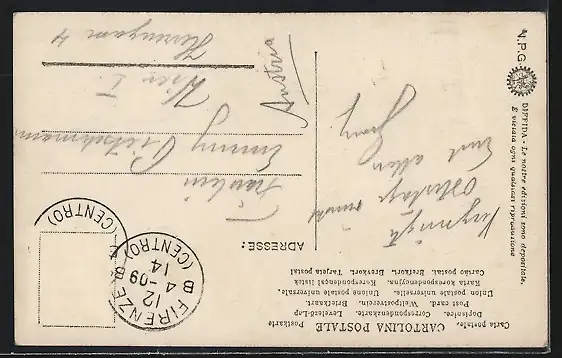 Carta postale. CARTOLINA POSTALE Postkarte
Dopisnice. Correspondenzkarte. Levelező-Lap
Post card. Weltpostverein. Briefkaart.
Union postale universelle. Unione postale universale.
Karta korespondencyjna. Korespondenční lístek
Cartão postal. Brefkort. Brevkort. Tarjeta postal
ADRESSE:
Vergnügte
Ostertage
Euch allen
Fräulein
Emmy
Wien I.
Herrengasse 4
Austria
FIRENZE B
(CENTRO)
12
B 4 -09
14
(CENTRO)
N.P.G.
DIFFIDA - Le nostre edizioni sono depositate.
E vietata ogni qualsiasi riproduzione